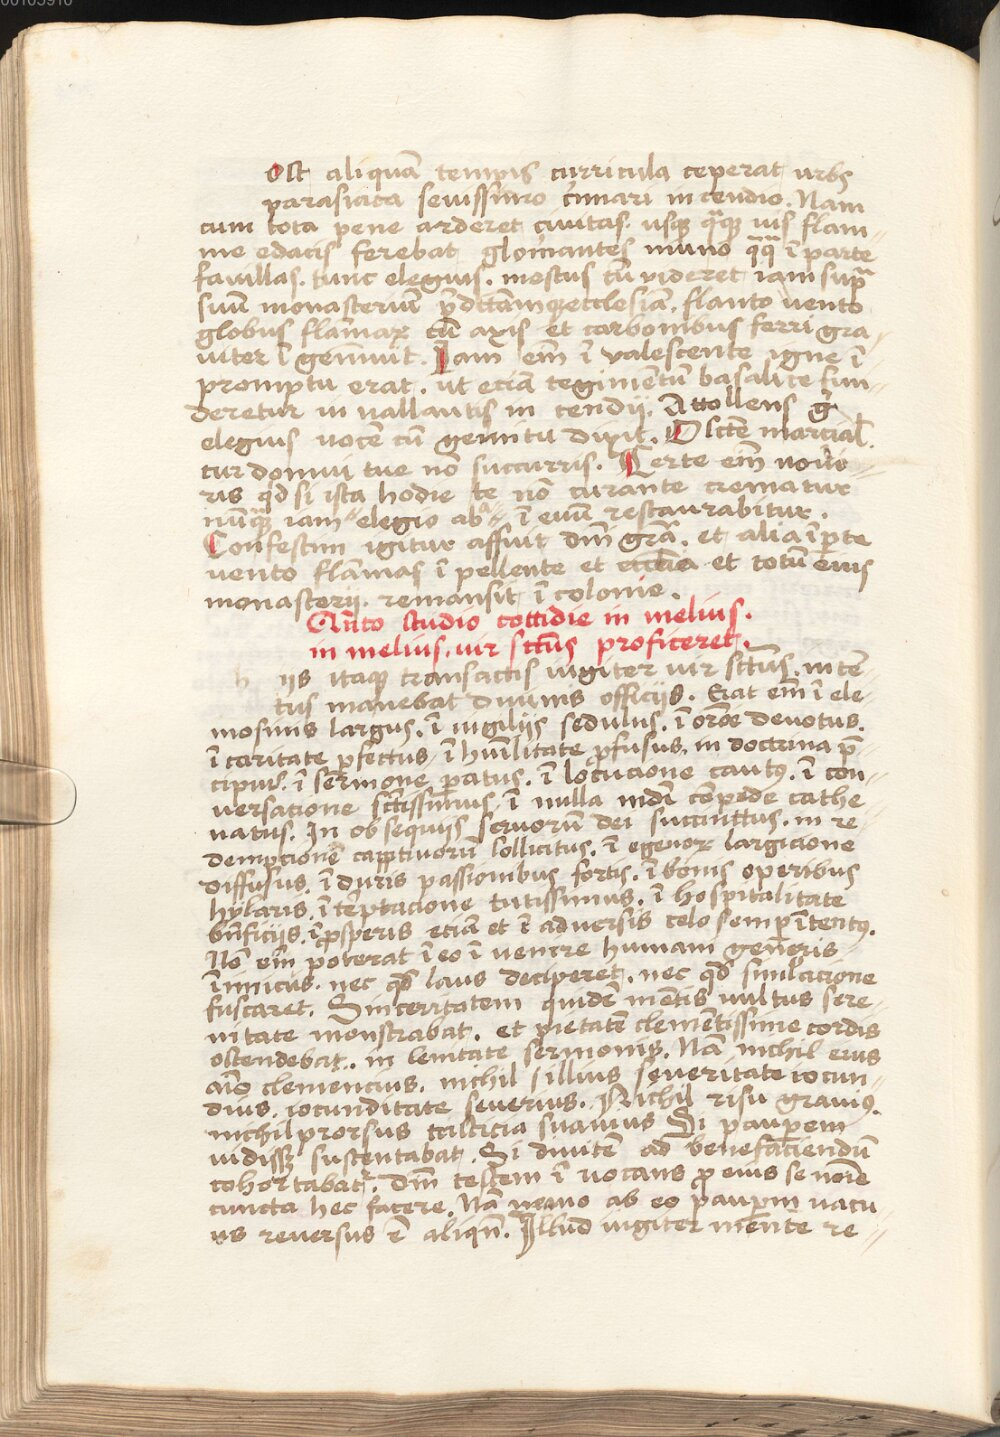 00103910
Ost aliquãt tempis curricula ceperat urbs
parasiaca seuissimo c̃mari incendio. Nam
cum tota pene arderet ciuitas. usq̃ q̃q̃ uis flam„
me edacis ferebat glom̃antes muno q̃q̃ ĩ parte
fauillas. tunc elegius. mestus cũ videret iam sup̃
suũ monasteriũ p̃dictamq̃ ecclesiã. flanto vento
globus flam̃aꝝ cũ axis et carbonibus ferri gra„
uiter ĩ gem̃uit. Iam em̃ ĩ valescente igne ĩ
promptu erat. ut eciã tegimẽtũ basalice fun„
deretur in uallantis in cendij. Attollens g̃
elegius uocẽ cũ gemitu dixit. O sctẽ marcial̃.
cur domui tue nõ succurris. Certe em̃ noue„
ris qd̃ si ista hodie te nõ curante crematur
nũq̃ iam„ elegio ab„ ĩ euũ restaurabitur.
Confestim igitur affuit dm̃ gr̃a. et alia ĩ p̃te
uento flam̃as ĩ pellente et ecclia et totũ eius
monasterij. remansit ĩ colonie.
Q̃nto studio cottidie in melius.
in melius. uir sctũs proficeret.
h ijs itaq̃ transactis iugiter uir sctũs. intẽ„
tus manebat diuinis officijs. Erat em̃ ĩ ele„
mosinis largus. ĩ uigilijs sedulus. ĩ orõe deuotus.
ĩ caritate p̃fectus. ĩ hũilitate p̃fusus. in doctrina p̃„
cipuꝰ. ĩ sermone p̃atus. ĩ locucione cautꝰ. ĩ con„
uersacione sctissimus. ĩ nulla mdi cõpede cathe„
natus. In obsequijs seruorũ dei succinttus. in re„
dempcionẽ capptiuorũ sollicitus. ĩ egenoꝝ largicione
diffusus. ĩ duris passionibus fortis. ĩ bonis operibus
hylaris. ĩ tẽptacione tutissimus. ĩ hospitalitate
bñficijs. ĩ p̃speris eciã et ĩ aduersis celo semp̃ ĩtentꝰ.
Nõ em̃ poterat ĩ eo ĩ uenire humani generis
ĩimicus. nec qd̃ laus deciperet. nec qd̃ simlacione
fuscaret. Sinceritatem quidẽ mẽtis uultus sere„
nitate monstrabat. et pietatẽ clemẽtissime cordis
ostendebat. in lenitate sermonis. Nã nichil eius
aĩo clemencius. nichil sillius seueritate iocun„
dius. iocunditate seuerius. Nichil risu grauiꝰ.
nichil prorsus tristicia suauius Si paup̃em
uidissꝫ sustentabat. Si diuitẽ ad benefaciendũ
cohortabatr̃. dm̃ testem ĩ uocans p̃ eius se noĩe
cuncta hec facere. Nã nemo ab eo paup̃m uacu„
us reuersus ẽ aliqñ. Illud iugiter mẽte re„